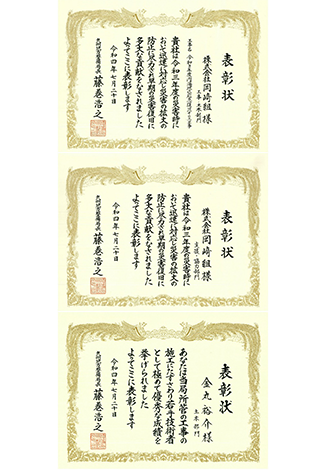 表彰状
株式会社岡﨑組様
貴社は令和三年度の災害時に
おいて迅速に対応し災害の拡大の
防止に尽力され早期の災害復旧に
多大な貢献をなされました
よってここに表彰します
令和四年七月二十日
藤巻浩之
表彰状
株式会社岡﨑組様
貴社は令和三年度の災害時に
おいて迅速に対応し災害の拡大の
防止に尽力され早期の災害復旧に
多大な貢献をなされました
よってここに表彰します
令和四年七月二十日
藤巻浩之
表彰状
金丸裕介様
あなたは当局所管の工事の
施工にたずさわり若手技術者
として極めて優秀な成績を
挙げられました
よってここに表彰します
令和四年七月二十日
藤巻浩之